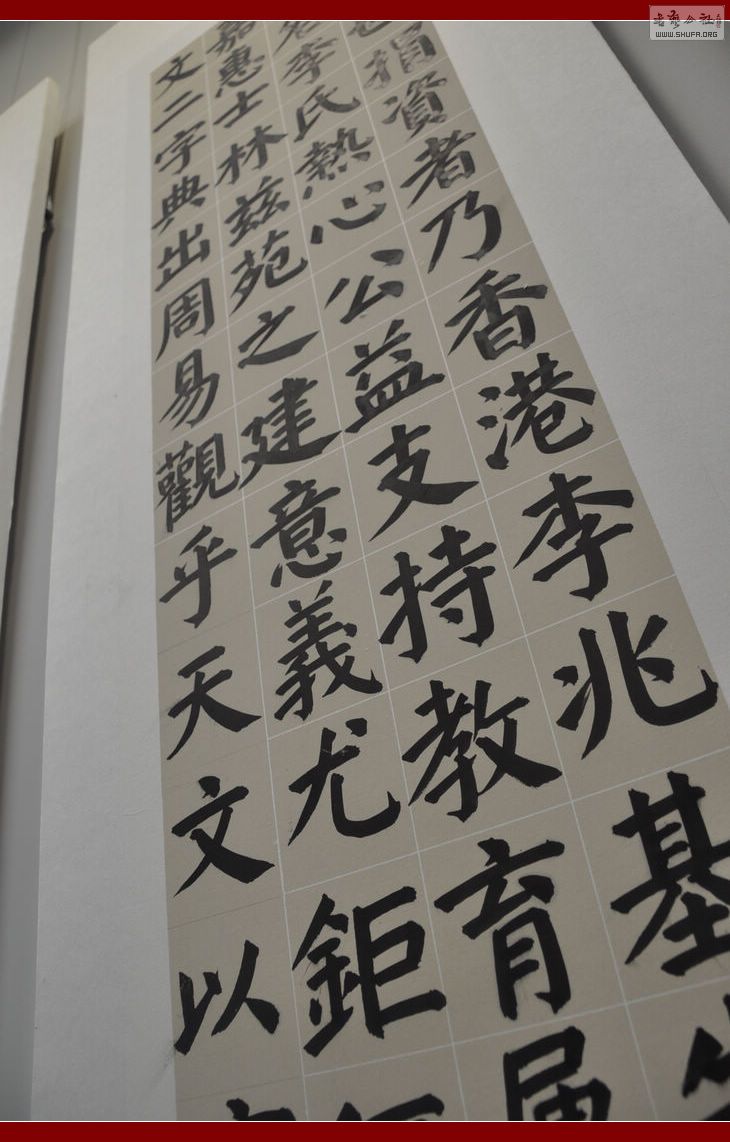 捐資者乃香港李兆基
李氏熱心公益支持教育屆
嘉惠士林茲苑之建意義尤鉅
文二字典出周易觀乎天文以
書藝公社
WWW.SHUFA.ORG